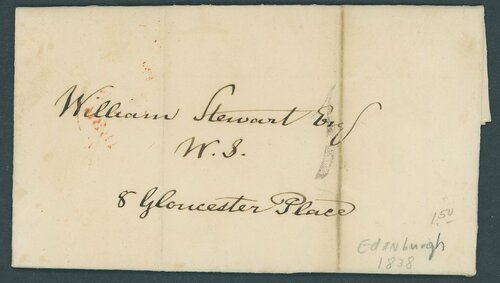 William Stewart Esq
W.S.
8 Gloucester Place
1
1.50
Edinburgh
1838